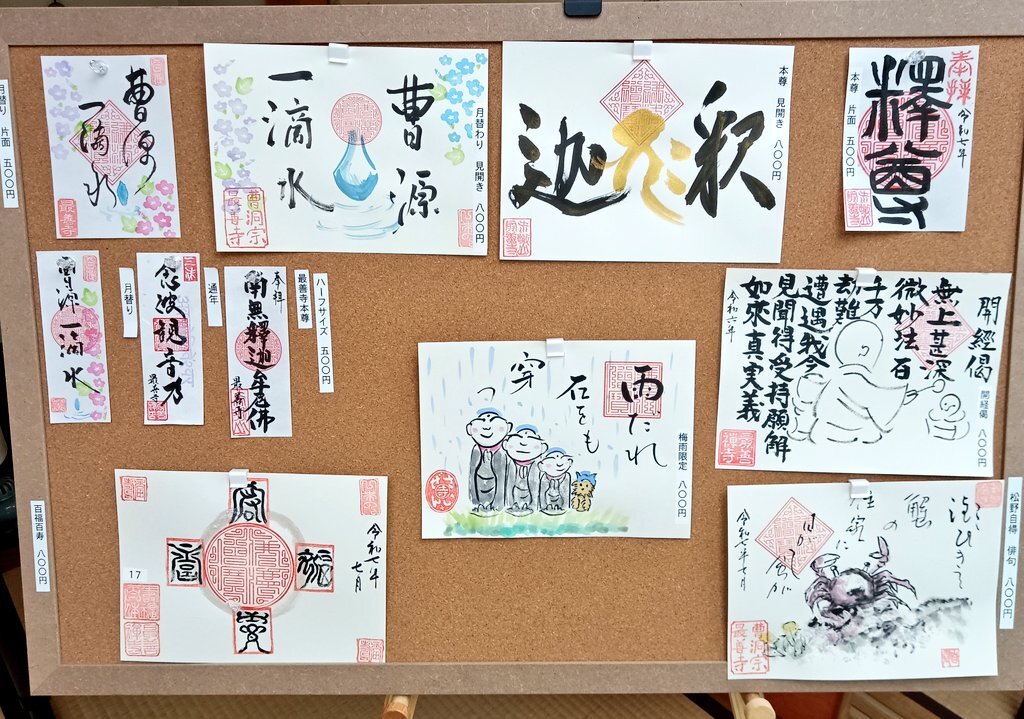 月替り 片面 五〇〇円
曹源
一滴水
最善寺
曹源
一滴水
曹洞宗
最善寺
月替わり 見開き 八〇〇円
釈
迦
本尊 見開き 八〇〇円
奉拝
令和七年
釋尊
本尊 片面 五〇〇円
曹源一滴水
月替り
念彼観音力
最善寺
通年
奉拝
南無釋迦牟尼佛
最善寺
最善寺本尊
ハーフサイズ 五〇〇円
雨たれ
石をも
穿
つ
梅雨限定 八〇〇円
開經偈
無上甚深
微妙法百
千万
劫難
遭遇我今
見聞得受持願解
如來真実義
令和六年
最善
禅寺
開経偈 八〇〇円
百福百寿 八〇〇円
17
令和七年
七月
松野自得 俳句 八〇〇円
蟹
の
令和七年七月
曹洞宗
最善寺